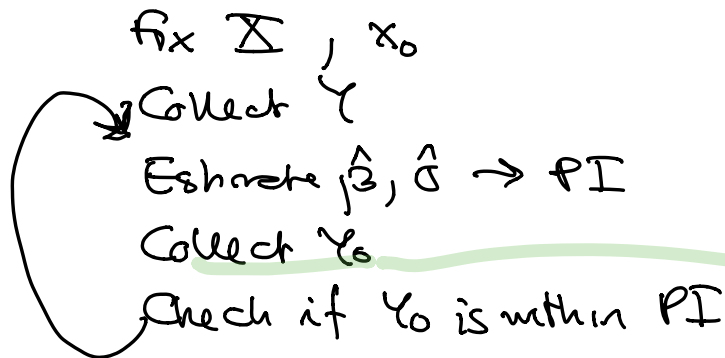 Fix X , x₀
Collect Y
Estimate β̂, σ̂ → PI
Collect Y₀
Check if Y₀ is within PI